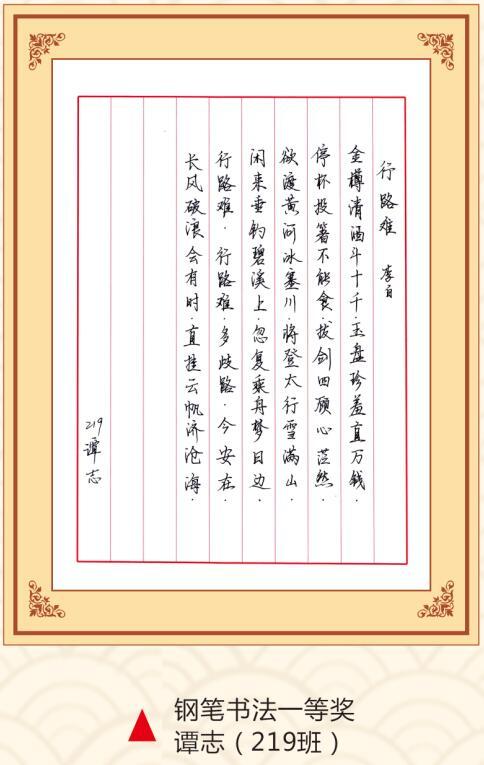 行路难 李白
金樽清酒斗十千.玉盘珍羞直万钱.
停杯投箸不能食.拔剑四顾心茫然.
欲渡黄河冰塞川.将登太行雪满山.
闲来垂钓碧溪上.忽复乘舟梦日边.
行路难.行路难.多歧路.今安在.
长风破浪会有时.直挂云帆济沧海.
219 谭志
钢笔书法一等奖
谭志（219班）